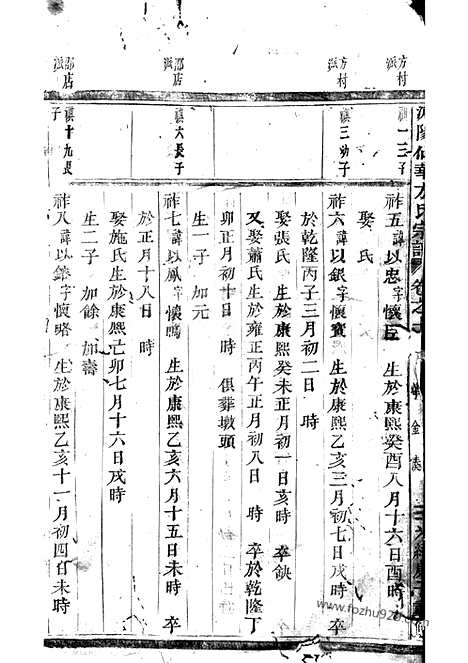 方村派
祚五諱以忠字懷臣 生於康熙癸酉八月十六日酉時
娶 氏
方村派
禛三幼子
祚六諱以銀字懷寶 生於康熙乙亥三月初七日戌時 卒
於乾隆丙子三月初二日 時
娶張氏生於康熙癸未正月初一日亥時 卒缺
又娶蕭氏生於雍正丙午正月初八日 時 卒於乾隆丁
卯正月初十日 時 俱葬墩頭
生一子 加元
邵店派
禛六長子
祚七諱以鳳字懷鳴 生於康熙乙亥六月十五日未時 卒
於正月十八日 時
娶施氏生於康熙己卯七月十六日戌時
生二子 加餘 加壽
邵店派
禛十九長子
祚八諱以錄字懷略 生於康熙乙亥十一月初四日未時
www.fozhu920.com